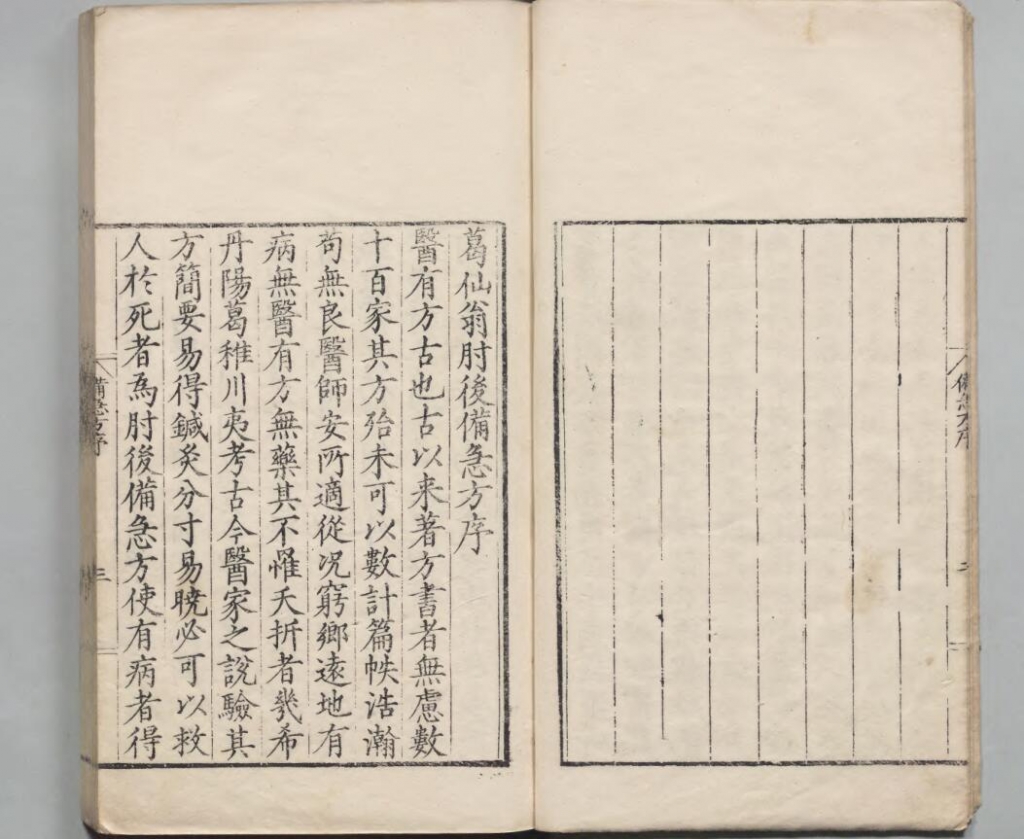 備急方序
葛仙翁肘後備急方序
醫有方古也古以来著方書者無慮數
十百家其方殆未可以數計篇帙浩瀚
苟無良醫師安所適從况窮鄉遠地有
病無醫有方無藥其不罹夭折者幾希
丹陽葛稚川夷考古今醫家之說驗其
方簡要易得鍼灸分寸易曉必可以救
人於死者為肘後備急方使有病者得
備急方序
三